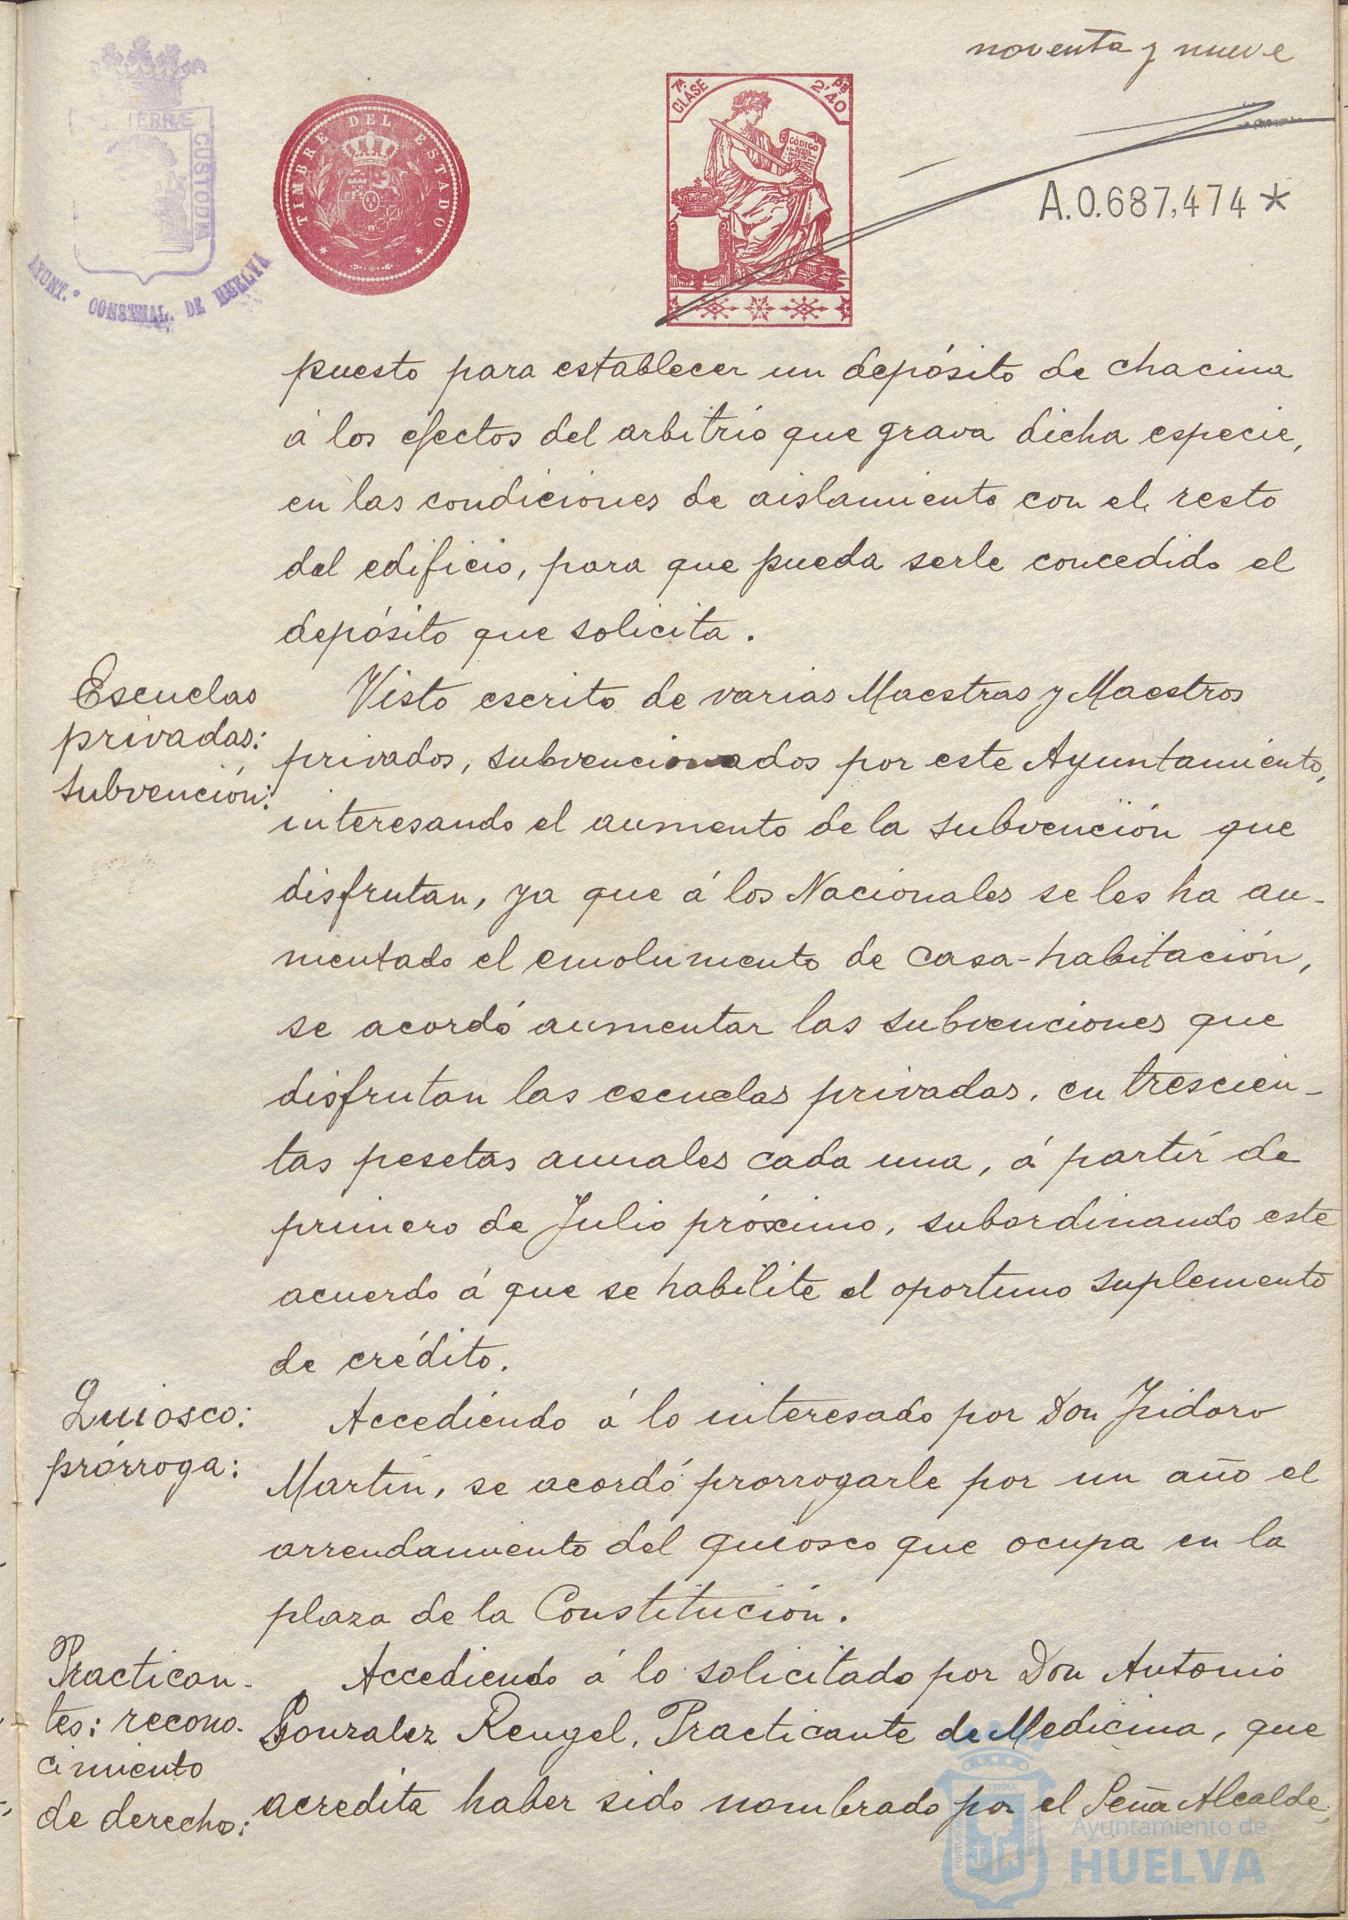 noventa y nueve
TERRE
CUSTODIA
AYUNT.º CONSTNAL. DE HUELVA
TIMBRE DEL ESTADO
7ª CLASE
2'40 Pª
CÓDIGO
A.0.687,474*
puesto para establecer un depósito de chacina
á los efectos del arbitrio que grava dicha especie,
en las condiciones de aislamiento con el resto
del edificio, para que pueda serle concedido el
depósito que solicita.
Escuelas
privadas:
subvención:
Visto escrito de varias Maestras y Maestros
privados, subvencionados por este Ayuntamiento,
interesando el aumento de la subvención que
disfrutan, ya que á los Nacionales se les ha au-
mentado el emolumento de casa-habitación,
se acordó aumentar las subvenciones que
disfrutan las escuelas privadas, en trescien-
tas pesetas anuales cada una, á partir de
primero de Julio próximo, subordinando este
acuerdo á que se habilite el oportuno suplemento
de crédito.
Quiosco:
prórroga:
Accediendo á lo interesado por Don Isidoro
Martín, se acordó prorrogarle por un año el
arrendamiento del quiosco que ocupa en la
plaza de la Constitución.
Practican-
tes: recono-
cimiento
de derecho:
Accediendo á lo solicitado por Don Antonio
Gonzalez Rengel, Practicante de Medicina, que
acredita haber sido nombrado por el Señor Alcalde,
Ayuntamiento de
HUELVA